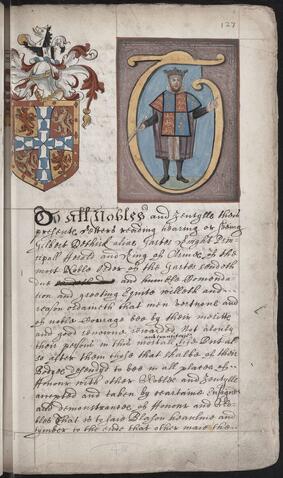 127
To all Nobles and Gentylls these
presente Letters reading hearing or Seeing
Gilbert Dethick alias Garter Knight Prin-
cipall Herold and King of Armes of the
most Noble Order of the Garter sendeth
due and humble Comenda-
tion and greeting Equite willeth and
reason ordaineth that men vertuous and
of noble Courage bee by their meritts
and good renowne rewarded Not alonly
their persons in this mortall life But al
so after them those that shalbe of their
Bodyes descended to bee in all places of
Honour with other Nobles and Gentylls
accepted and taken by certaine Ensignes
and demonstrances of Honour and No-
bles That is to say Blason heaulme and
tymber to the ende that other may the